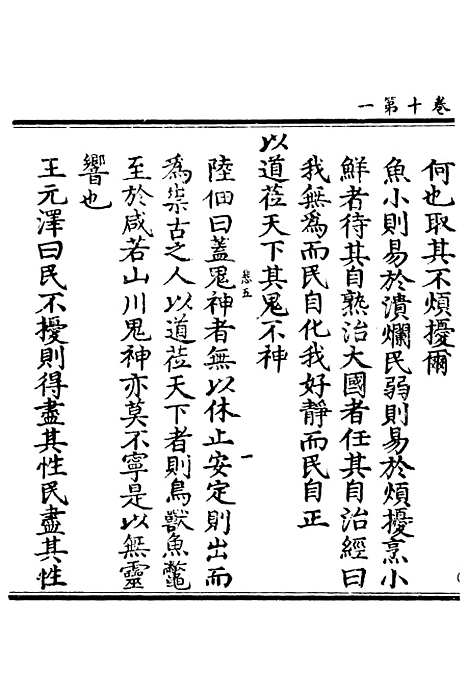 卷十第一
何也取其不煩擾爾
魚小則易於潰爛民弱則易於煩擾烹小
鮮者待其自熟治大國者任其自治經曰
我無為而民自化我好靜而民自正
以道莅天下其鬼不神
陸佃曰蓋鬼神者無以休止安定則出而
為祟古之人以道莅天下者則鳥獸魚鼈
至於咸若山川鬼神亦莫不寧是以無靈
響也
王元澤曰民不擾則得盡其性民盡其性